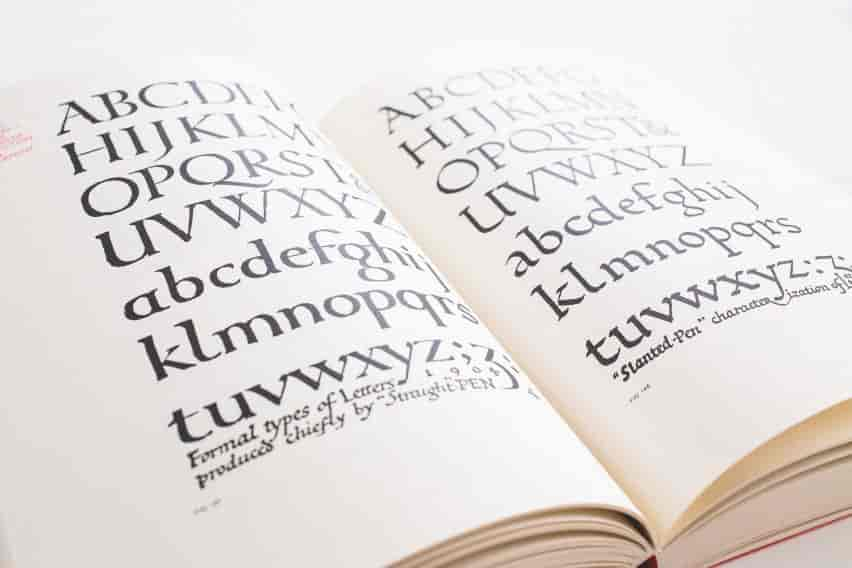 ABCDEF
HIJKLM
OPQRST
UVWXYZ
abcdefghij
klmnopqrs
tuvwxyz;
Formal types of Letters
produced chiefly by "Straight PEN
ABCDEFG
HIJKLMN
OPQRST&
UVWXYZ
abcdefghij
klmnopqrs
tuvwxyz:;
"Slanted-Pen" characterization of